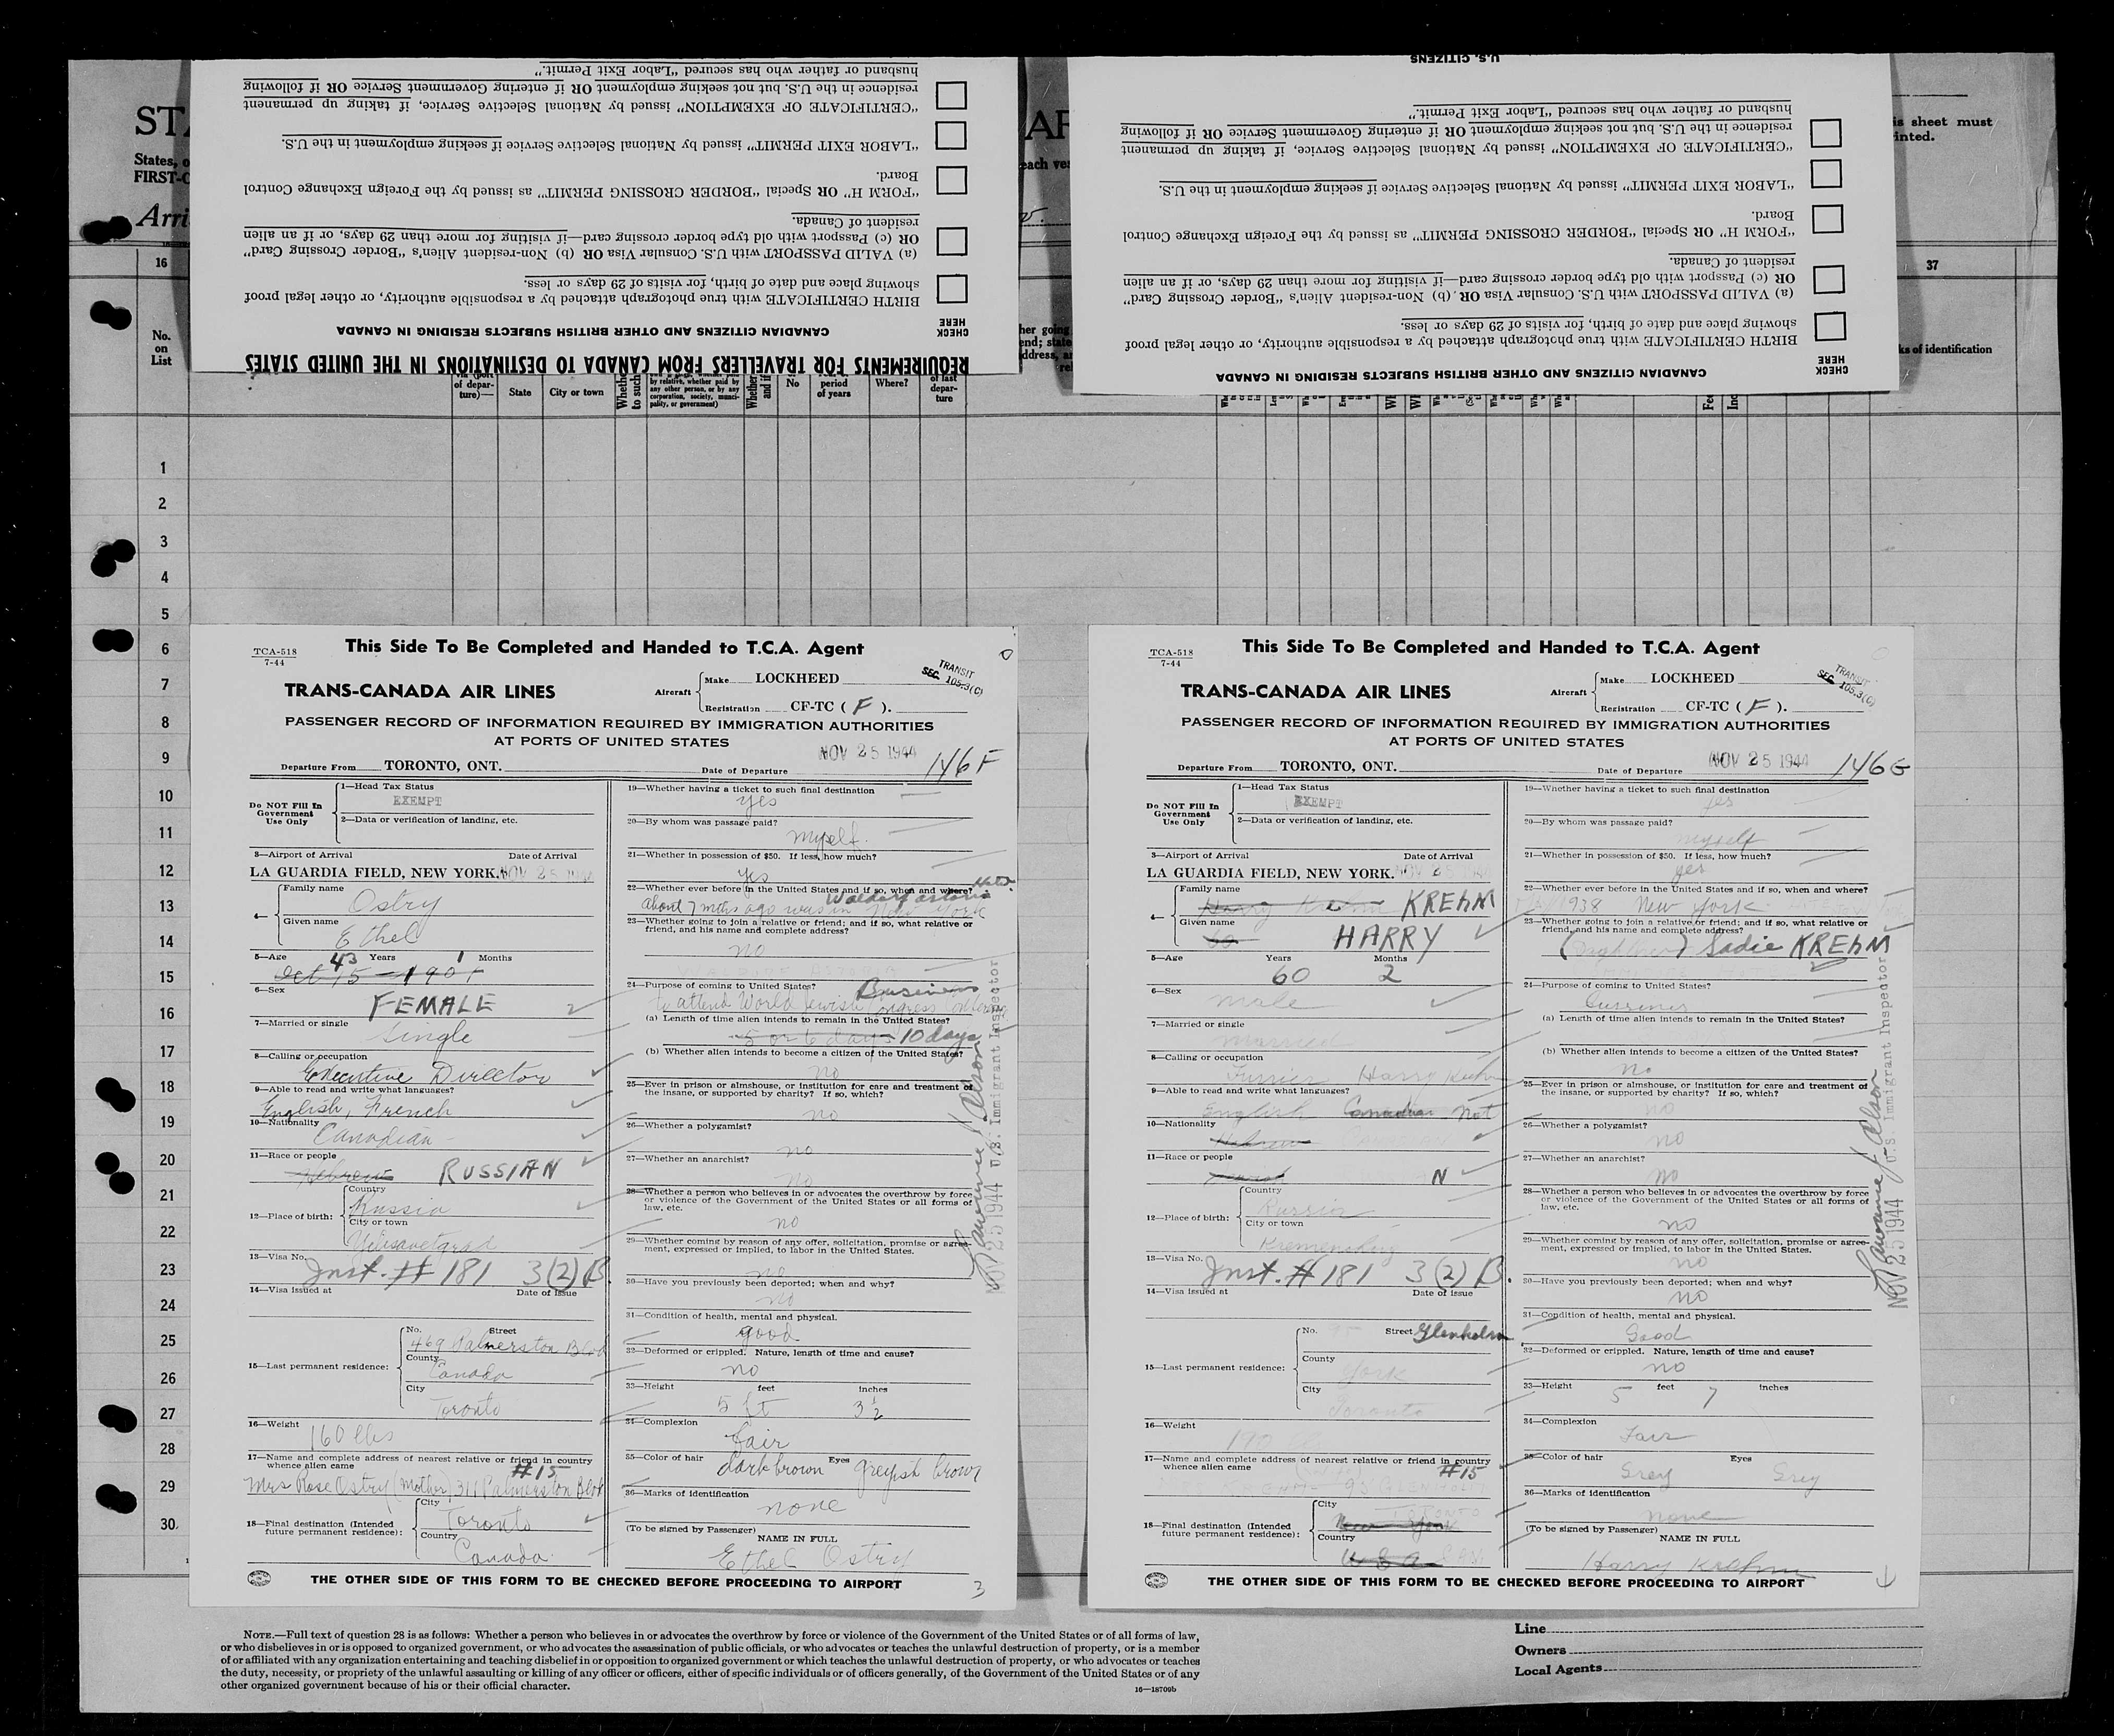 REQUIREMENTS FOR TRAVELLERS FROM CANADA TO DESTINATIONS IN THE UNITED STATES
CHECK HERE
CANADIAN CITIZENS AND OTHER BRITISH SUBJECTS RESIDING IN CANADA
BIRTH CERTIFICATE with true photograph attached by a responsible authority, or other legal proof
showing place and date of birth, for visits of 29 days or less.
(a) VALID PASSPORT with U.S. Consular Visa OR (b) Non-resident Alien's "Border Crossing Card"
OR (c) Passport with old type border crossing card—if visiting for more than 29 days, or if an alien
resident of Canada.
"FORM H" OR Special "BORDER CROSSING PERMIT" as issued by the Foreign Exchange Control
Board.
"LABOR EXIT PERMIT" issued by National Selective Service if seeking employment in the U.S.
"CERTIFICATE OF EXEMPTION" issued by National Selective Service, if taking up permanent
residence in the U.S. but not seeking employment OR if entering Government Service OR if following
husband or father who has secured "Labor Exit Permit."
CHECK HERE
CANADIAN CITIZENS AND OTHER BRITISH SUBJECTS RESIDING IN CANADA
BIRTH CERTIFICATE with true photograph attached by a responsible authority, or other legal proof
showing place and date of birth, for visits of 29 days or less.
(a) VALID PASSPORT with U.S. Consular Visa OR (b) Non-resident Alien's "Border Crossing Card"
OR (c) Passport with old type border crossing card—if visiting for more than 29 days, or if an alien
resident of Canada.
"FORM H" OR Special "BORDER CROSSING PERMIT" as issued by the Foreign Exchange Control
Board.
"LABOR EXIT PERMIT" issued by National Selective Service if seeking employment in the U.S.
"CERTIFICATE OF EXEMPTION" issued by National Selective Service, if taking up permanent
residence in the U.S. but not seeking employment OR if entering Government Service OR if following
husband or father who has secured "Labor Exit Permit."
U.S. CITIZENS
States,
FIRST-C
Arri
is sheet must
inted.
16
37
No.
on
List
ks of identification
of depar-
ture)—
State
City or town
by relative, whether paid by
any other person, or by any
corporation, society, munici-
pality, or government)
No
period
of years
Where?
of last
depar-
ture
1
2
3
4
5
6
7
8
9
10
11
12
13
14
15
16
17
18
19
20
21
22
23
24
25
26
27
28
29
30
This Side To Be Completed and Handed to T.C.A. Agent
TCA-518
7-44
TRANSIT
SEC. 105.3(C)
TRANS-CANADA AIR LINES
Aircraft
Make LOCKHEED
Registration CF-TC ( F ).
PASSENGER RECORD OF INFORMATION REQUIRED BY IMMIGRATION AUTHORITIES
AT PORTS OF UNITED STATES
Departure From TORONTO, ONT.
Date of Departure NOV 25 1944
146 F
Do NOT Fill In
Government
Use Only
1—Head Tax Status
EXEMPT
2—Data or verification of landing, etc.
3—Airport of Arrival Date of Arrival
LA GUARDIA FIELD, NEW YORK. NOV 25 1944
4—
Family name
Ostry
Given name
Ethel
5—Age 43 Years 1 Months
Oct 15 - 1901
6—Sex
FEMALE
7—Married or single
Single
8—Calling or occupation
Executive Director
9—Able to read and write what languages?
English, French
10—Nationality
Canadian
11—Race or people
Hebrew RUSSIAN
12—Place of birth:
Country
Russia
City or town
Yelisavetgrad
13—Visa No.
Inst. # 181 3(2) B.
14—Visa issued at Date of Issue
15—Last permanent residence:
No. Street
469 Palmerston Blvd
County
Canada
City
Toronto
16—Weight
160 lbs
17—Name and complete address of nearest relative or friend in country
whence alien came
#15
Mrs Rose Ostry (Mother) 311 Palmerston Blvd
18—Final destination (Intended
future permanent residence):
City
Toronto
Country
Canada
19—Whether having a ticket to such final destination
yes
20—By whom was passage paid?
Myself.
21—Whether in possession of $50. If less, how much?
yes
22—Whether ever before in the United States and if so, when and where?
Waldorf Astoria Hotel
about 7 mths ago was in New York
23—Whether going to join a relative or friend; and if so, what relative or
friend, and his name and complete address?
no
24—Purpose of coming to United States?
Business
to attend World Jewish Congress
(a) Length of time alien intends to remain in the United States?
5 or 6 days 10 days
(b) Whether alien intends to become a citizen of the United States?
no
25—Ever in prison or almshouse, or institution for care and treatment of
the insane, or supported by charity? If so, which?
no
26—Whether a polygamist?
no
27—Whether an anarchist?
no
28—Whether a person who believes in or advocates the overthrow by force
or violence of the Government of the United States or all forms of
law, etc.
no
29—Whether coming by reason of any offer, solicitation, promise or agree-
ment, expressed or implied, to labor in the United States.
no
30—Have you previously been deported; when and why?
no
31—Condition of health, mental and physical.
good
32—Deformed or crippled. Nature, length of time and cause?
no
33—Height feet inches
5 ft 3 1/2
34—Complexion
fair
35—Color of hair Eyes
dark brown greyish brown
36—Marks of identification
none
(To be signed by Passenger)
NAME IN FULL
Ethel Ostry
THE OTHER SIDE OF THIS FORM TO BE CHECKED BEFORE PROCEEDING TO AIRPORT
3
NOV 25 1944 U.S. Immigrant Inspector
This Side To Be Completed and Handed to T.C.A. Agent
TCA-518
7-44
TRANSIT
SEC. 105.3(C)
TRANS-CANADA AIR LINES
Aircraft
Make LOCKHEED
Registration CF-TC ( F ).
PASSENGER RECORD OF INFORMATION REQUIRED BY IMMIGRATION AUTHORITIES
AT PORTS OF UNITED STATES
Departure From TORONTO, ONT.
Date of Departure NOV 25 1944
146 G
Do NOT Fill In
Government
Use Only
1—Head Tax Status
EXEMPT
2—Data or verification of landing, etc.
3—Airport of Arrival Date of Arrival
LA GUARDIA FIELD, NEW YORK.
4—
Family name
Harry KREHM
Given name
60 HARRY
5—Age Years Months
60 2
6—Sex
male
7—Married or single
married
8—Calling or occupation
Furrier Harry Krehm
9—Able to read and write what languages?
English Canadian Nat
10—Nationality
Hebrew
11—Race or people
N
12—Place of birth:
Country
Russia
City or town
13—Visa No.
Inst. # 181 3(2) B.
14—Visa issued at Date of Issue
15—Last permanent residence:
No. Street Glenholm
County
York
City
Toronto
16—Weight
190
17—Name and complete address of nearest relative or friend in country
whence alien came
#15
18—Final destination (Intended
future permanent residence):
City
New York
Country
U S A
19—Whether having a ticket to such final destination
yes
20—By whom was passage paid?
myself
21—Whether in possession of $50. If less, how much?
yes
22—Whether ever before in the United States and if so, when and where?
1938 New York
23—Whether going to join a relative or friend; and if so, what relative or
friend, and his name and complete address?
(Daughter) Sadie KREHM
24—Purpose of coming to United States?
Business
(a) Length of time alien intends to remain in the United States?
(b) Whether alien intends to become a citizen of the United States?
no
25—Ever in prison or almshouse, or institution for care and treatment of
the insane, or supported by charity? If so, which?
no
26—Whether a polygamist?
no
27—Whether an anarchist?
no
28—Whether a person who believes in or advocates the overthrow by force
or violence of the Government of the United States or all forms of
law, etc.
no
29—Whether coming by reason of any offer, solicitation, promise or agree-
ment, expressed or implied, to labor in the United States.
no
30—Have you previously been deported; when and why?
no
31—Condition of health, mental and physical.
Good
32—Deformed or crippled. Nature, length of time and cause?
no
33—Height 5 feet 7 inches
34—Complexion
Fair
35—Color of hair Eyes
Grey Grey
36—Marks of identification
none
(To be signed by Passenger)
NAME IN FULL
Harry Krehm
THE OTHER SIDE OF THIS FORM TO BE CHECKED BEFORE PROCEEDING TO AIRPORT
NOV 25 1944 U.S. Immigrant Inspector
NOTE.—Full text of question 28 is as follows: Whether a person who believes in or advocates the overthrow by force or violence of the Government of the United States or of all forms of law,
or who disbelieves in or is opposed to organized government, or who advocates the assassination of public officials, or who advocates or teaches the unlawful destruction of property, or is a member
of or affiliated with any organization entertaining and teaching disbelief in or opposition to organized government or which teaches the unlawful destruction of property, or who advocates or teaches
the duty, necessity, or propriety of the unlawful assaulting or killing of any officer or officers, either of specific individuals or of officers generally, of the Government of the United States or of any
other organized government because of his or their official character.
16—18709b
Line
Owners
Local Agents